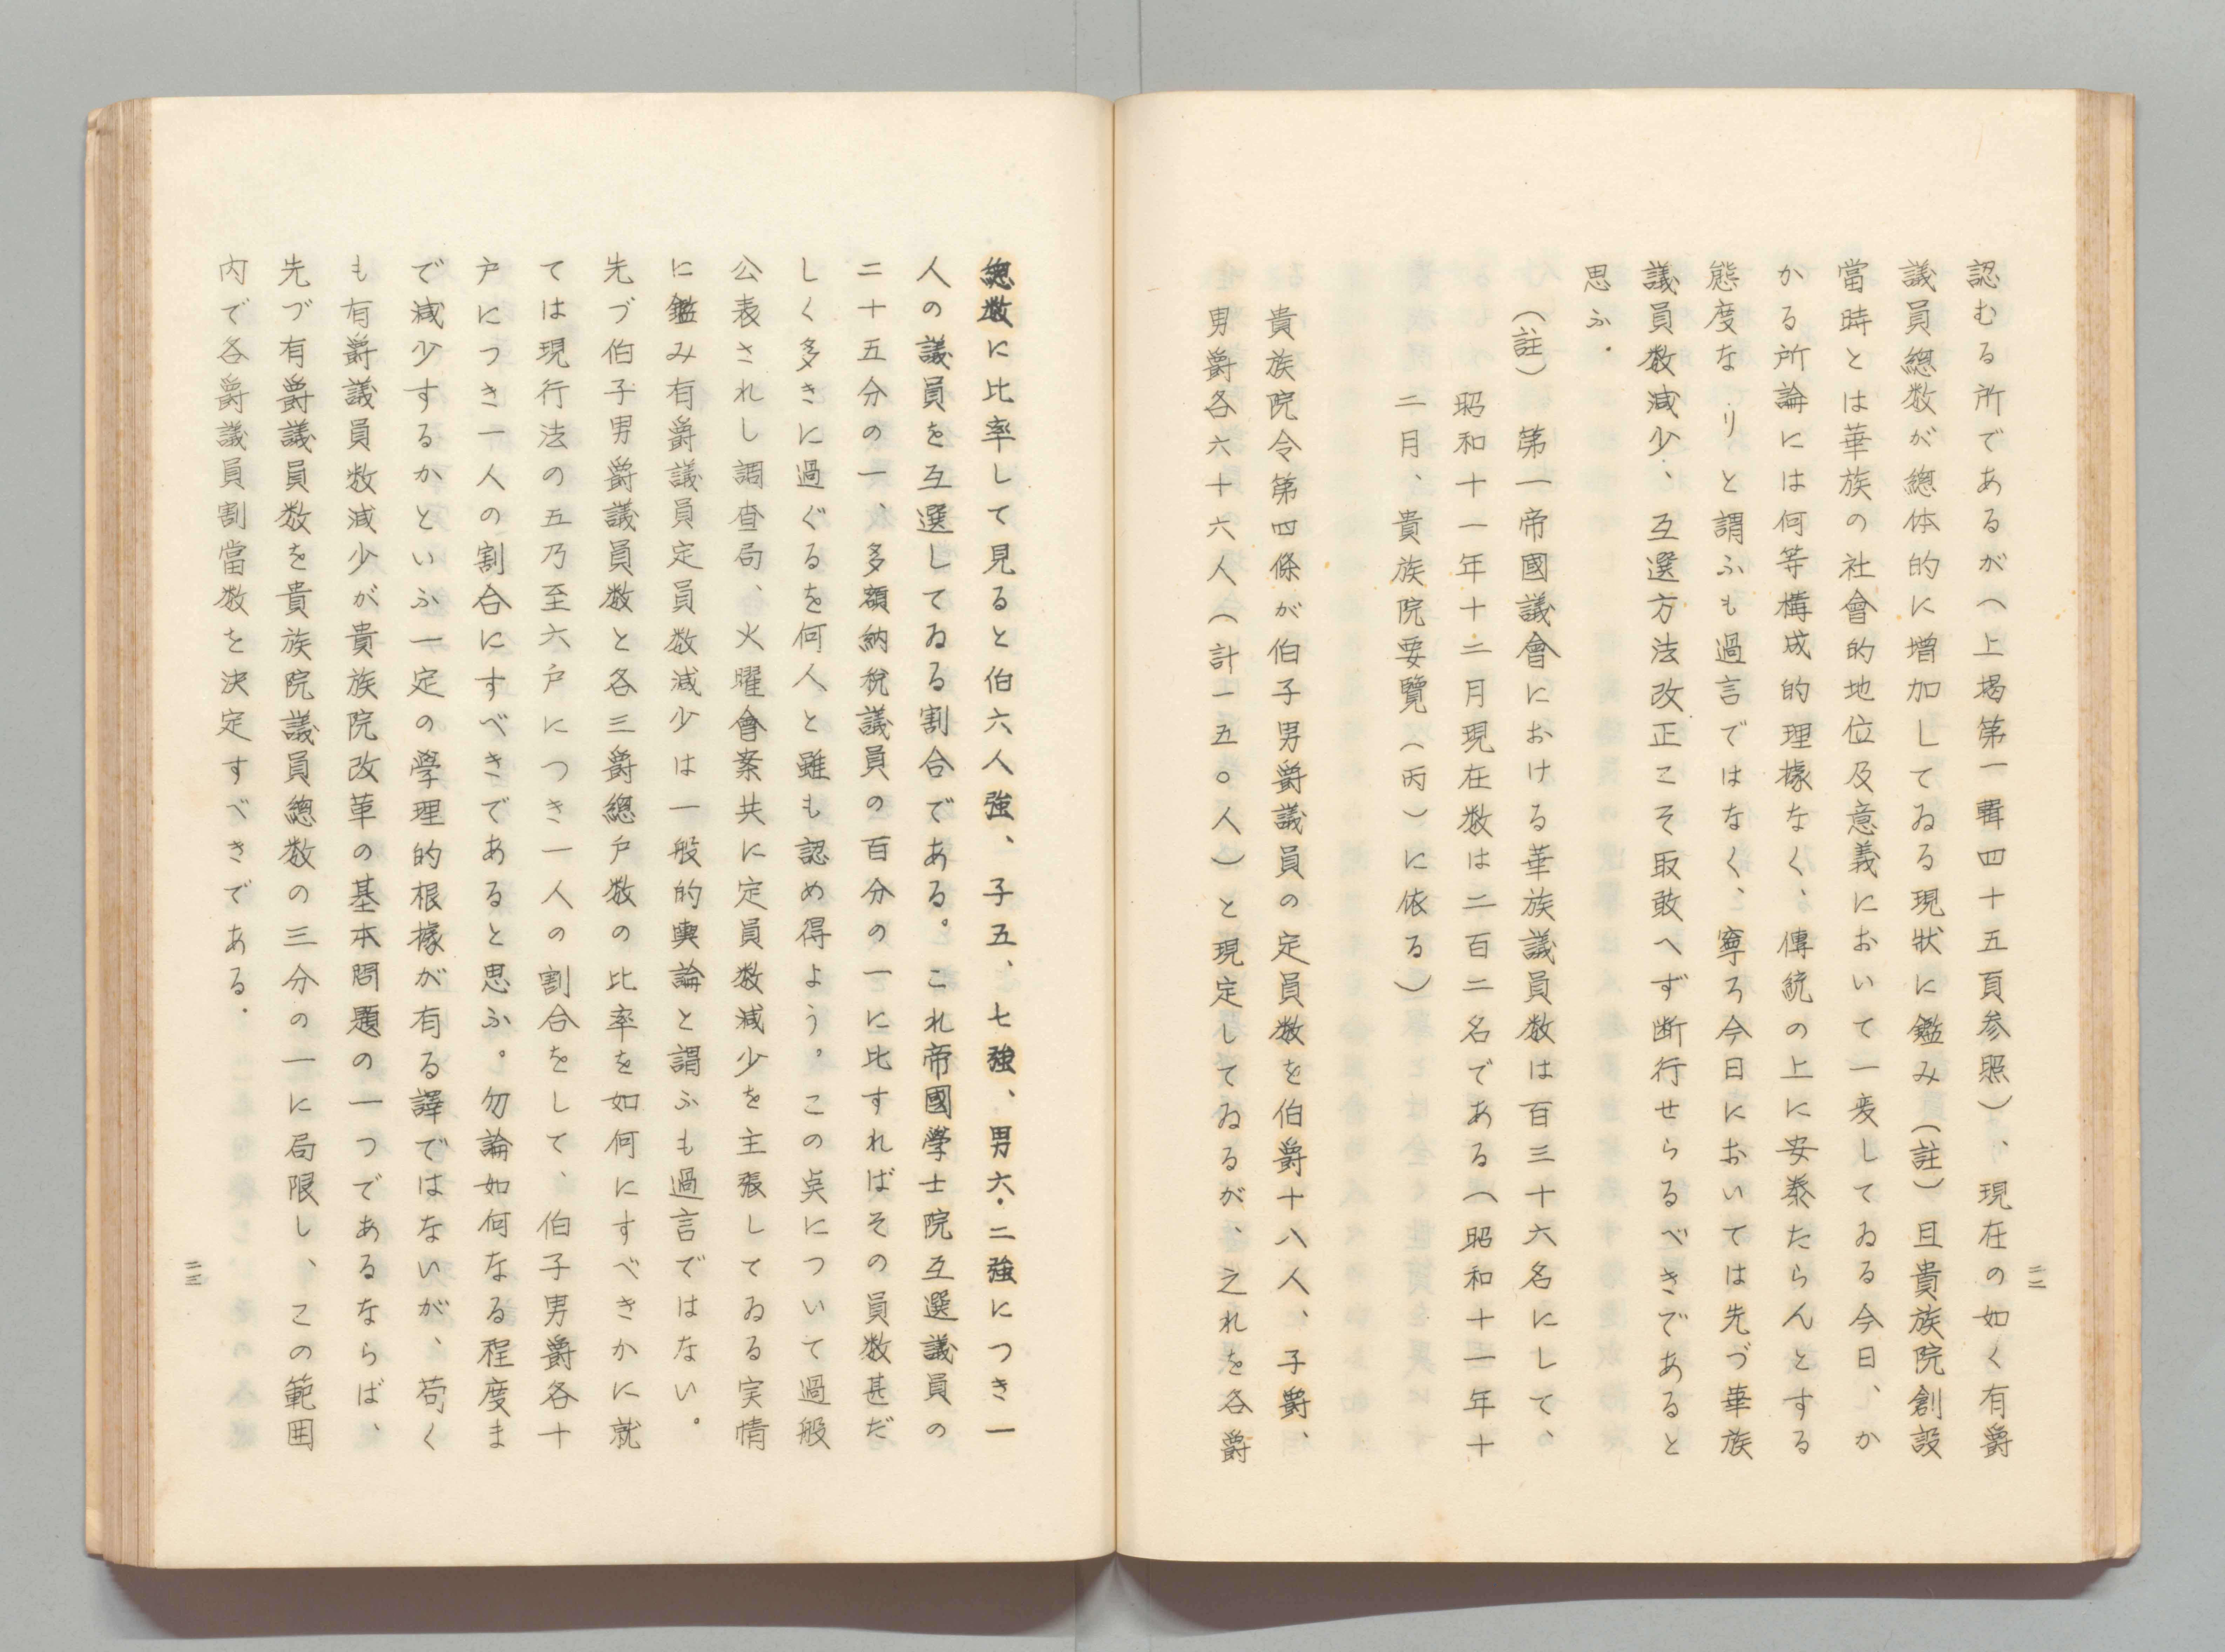 認むる所であるが（上掲第一輯四十五頁参照）、現在の如く有爵
議員總数が總体的に増加してゐる現狀に鑑み（註）且貴族院創設
當時とは華族の社會的地位及意義において一変してゐる今日、か
かる所論には何等構成的理據なく、傳統の上に安泰たらんとする
態度なりと謂ふも過言ではなく、寧ろ今日においては先づ華族
議員数減少、互選方法改正こそ取敢へず断行せらるべきであると
思ふ．
（註）　第一帝國議會における華族議員数は百三十六名にして、
昭和十一年十二月現在数は二百二名である（昭和十一年十
二月、貴族院要覽（丙）に依る）
貴族院令第四條が伯子男爵議員の定員数を伯爵十八人、子爵、
男爵各六十六人（計一五〇人）と現定してゐるが、之れを各爵
二二
總数に比率して見ると伯六人強、子五、七強、男六．二強につき一
人の議員を互選してゐる割合である。これ帝國學士院互選議員の
二十五分の一、多額納稅議員の百分の一に比すればその員数甚だ
しく多きに過ぐるを何人と雖も認め得よう。この点について過般
公表されし調査局、火曜會案共に定員数減少を主張してゐる実情
に鑑み有爵議員定員数減少は一般的輿論と謂ふも過言ではない。
先づ伯子男爵議員数と各三爵總戶数の比率を如何にすべきかに就
ては現行法の五乃至六戶につき一人の割合をして、伯子男爵各十
戶につき一人の割合にすべきであると思ふ。勿論如何なる程度ま
で減少するかといふ一定の學理的根據が有る譯ではないが、苟く
も有爵議員数減少が貴族院改革の基本問題の一つであるならば、
先づ有爵議員数を貴族院議員總数の三分の一に局限し、この範囲
内で各爵議員割當数を決定すべきである．
二三